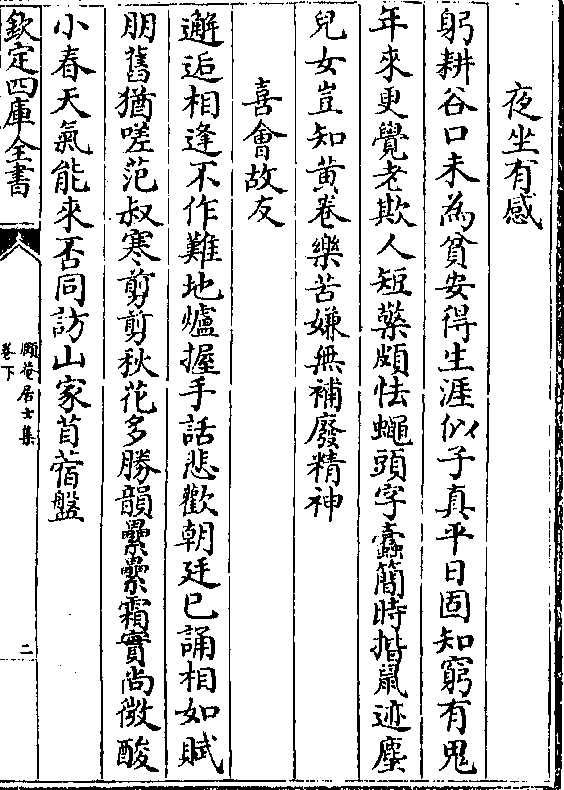 夜坐有感
躬耕谷口未為貧安得生涯似子真平日固知窮有鬼
年來更覺老欺人短檠頗怯蠅頭字蠧簡時揩鼠迹塵
兒女豈知黄卷樂苦嫌無補廢精神
喜會故友
邂逅相逢不作難地爐握手話悲歡朝廷已誦相如賦
朋舊猶嗟范叔寒剪剪秋花多勝韻纍纍霜實尚微酸
小春天氣能來否同訪山家苜蓿盤
欽定四庫全書
頤菴居士集
卷下
二